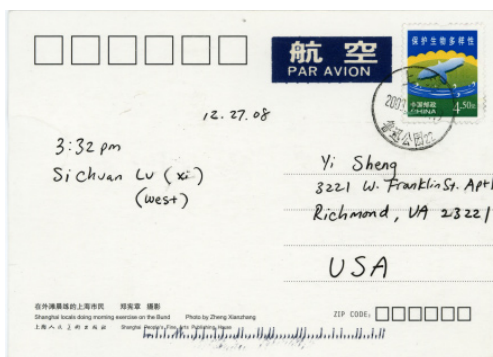 航 空
PAR AVION
保护生物多样性
中国邮政
CHINA
4.50元
12.27.08
3:32 pm
Sichuan Lu (xi)
(west)
Yi Sheng
3221 W. Franklin St. Apt
Richmond, VA 23221
USA
在外滩晨练的上海市民 郑宪章 摄影
Shanghai locals doing morning exercise on the Bund Photo by Zheng Xianzhang
上海人民美术出版社 Shanghai People's Fine Arts Publishing House
ZIP CODE: